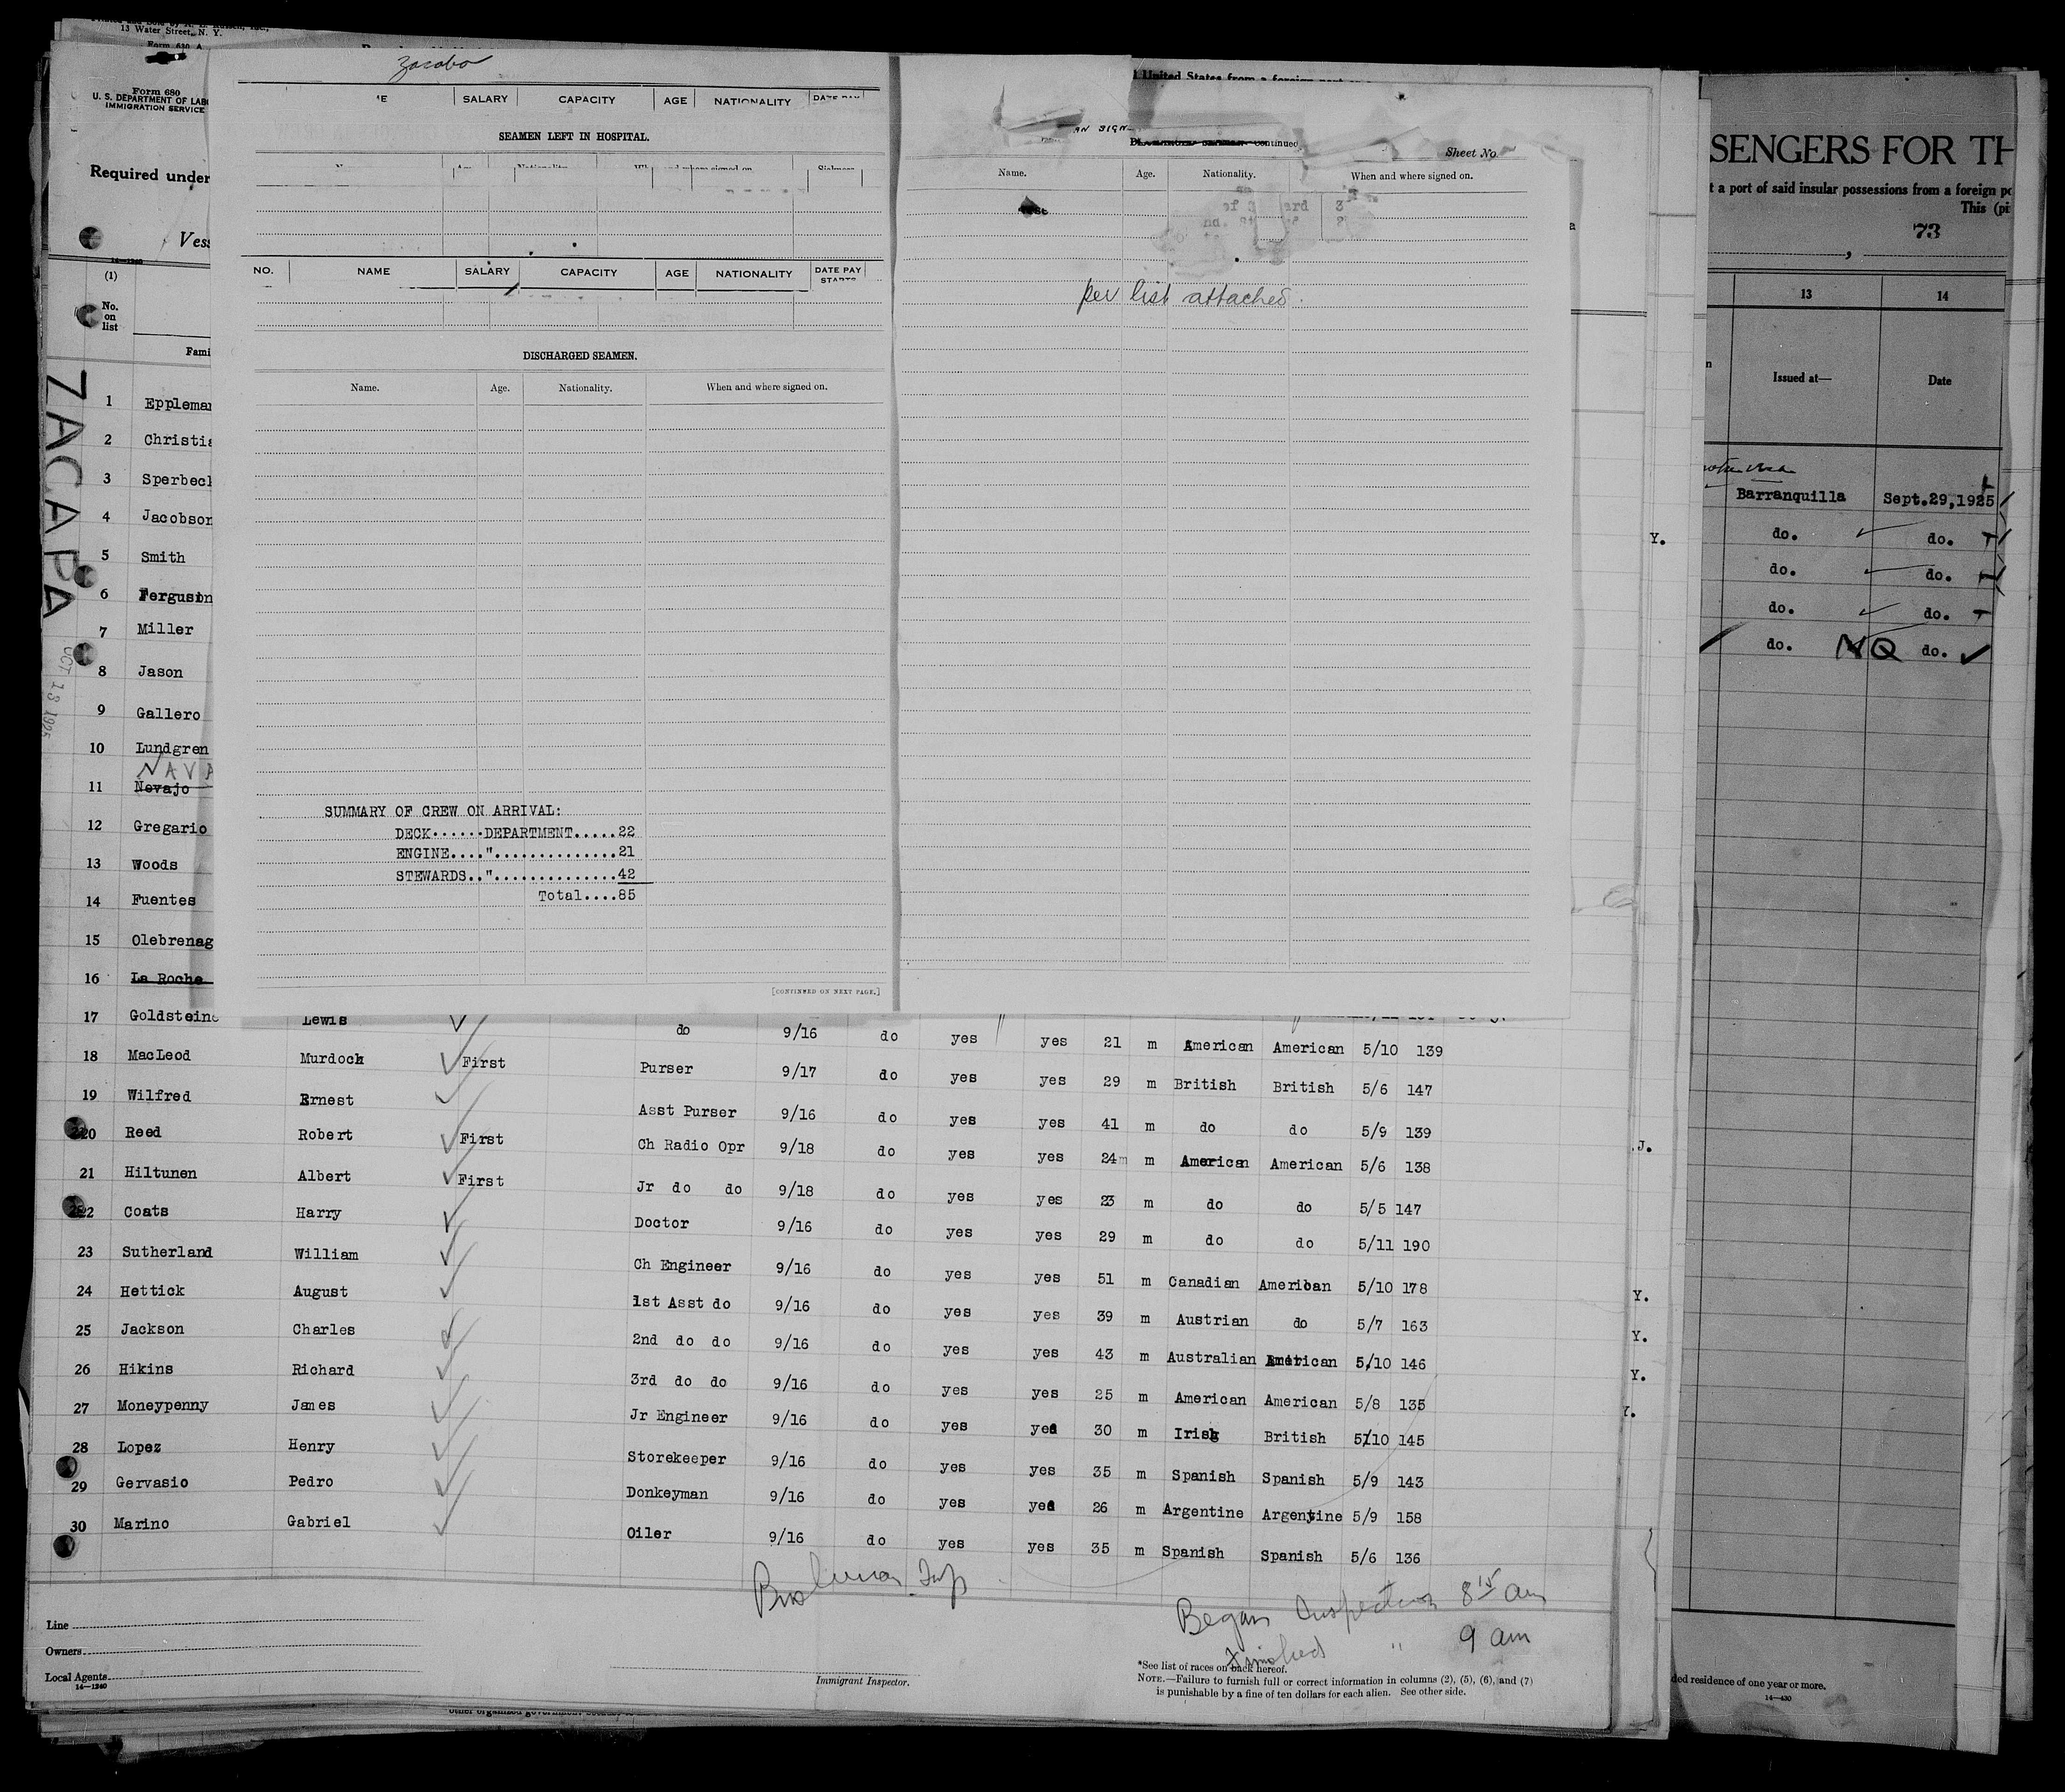 13 Water Street, N. Y.
Form 630 A
Form 680
U. S. DEPARTMENT OF LABO
IMMIGRATION SERVICE
Required under
Vess
14—1240
(1)
No. on list
Fami
ZACAPA
OCT 13 1925
1 Eppleman
2 Christia
3 Sperbeck
4 Jacobson
5 Smith
6 Ferguson
7 Miller
8 Jason
9 Gallero
10 Lundgren
NAVA
11 Nevajo
12 Gregario
13 Woods
14 Fuentes
15 Olebrenag
16 La Roche
SALARY CAPACITY AGE NATIONALITY DATE PAY
SEAMEN LEFT IN HOSPITAL.
NO. NAME SALARY CAPACITY AGE NATIONALITY DATE PAY STARTS
DISCHARGED SEAMEN.
Name. Age. Nationality. When and where signed on.
SUMMARY OF CREW ON ARRIVAL:
DECK......DEPARTMENT.....22
ENGINE...."...............21
STEWARDS.."...............42
Total....85
[CONTINUED ON NEXT PAGE.]
United States from a foreign port
Continued
Sheet No
Name. Age. Nationality. When and where signed on.
per list attached.
17 Goldstein Lewis do 9/16 do yes yes 21 m American American 5/10 139
18 MacLeod Murdoch First Purser 9/17 do yes yes 29 m British British 5/6 147
19 Wilfred Ernest Asst Purser 9/16 do yes yes 41 m do do 5/9 139
20 Reed Robert First Ch Radio Opr 9/18 do yes yes 24 m American American 5/6 138
21 Hiltunen Albert First Jr do do 9/18 do yes yes 23 m do do 5/5 147
22 Coats Harry Doctor 9/16 do yes yes 29 m do do 5/11 190
23 Sutherland William Ch Engineer 9/16 do yes yes 51 m Canadian American 5/10 178
24 Hettick August 1st Asst do 9/16 do yes yes 39 m Austrian do 5/7 163
25 Jackson Charles 2nd do do 9/16 do yes yes 43 m Australian American 5/10 146
26 Hikins Richard 3rd do do 9/16 do yes yes 25 m American American 5/8 135
27 Moneypenny James Jr Engineer 9/16 do yes yes 30 m Irish British 5/10 145
28 Lopez Henry Storekeeper 9/16 do yes yes 35 m Spanish Spanish 5/9 143
29 Gervasio Pedro Donkeyman 9/16 do yes yes 26 m Argentine Argentine 5/9 158
30 Marino Gabriel Oiler 9/16 do yes yes 35 m Spanish Spanish 5/6 136
Began Inspection 8 15 am
Finished " 9 am
Line
Owners
Local Agents
14—1240
Immigrant Inspector.
*See list of races on back hereof.
NOTE.—Failure to furnish full or correct information in columns (2), (5), (6), and (7)
is punishable by a fine of ten dollars for each alien. See other side.
Y.
J.
Y.
Y.
Y.
Y.
SENGERS FOR TH
t a port of said insular possessions from a foreign po
This (pi
73
13 14
Issued at— Date
Barranquilla Sept.29,1925
do. do.
do. do.
do. do.
do. NQ do.
ded residence of one year or more.
14—430